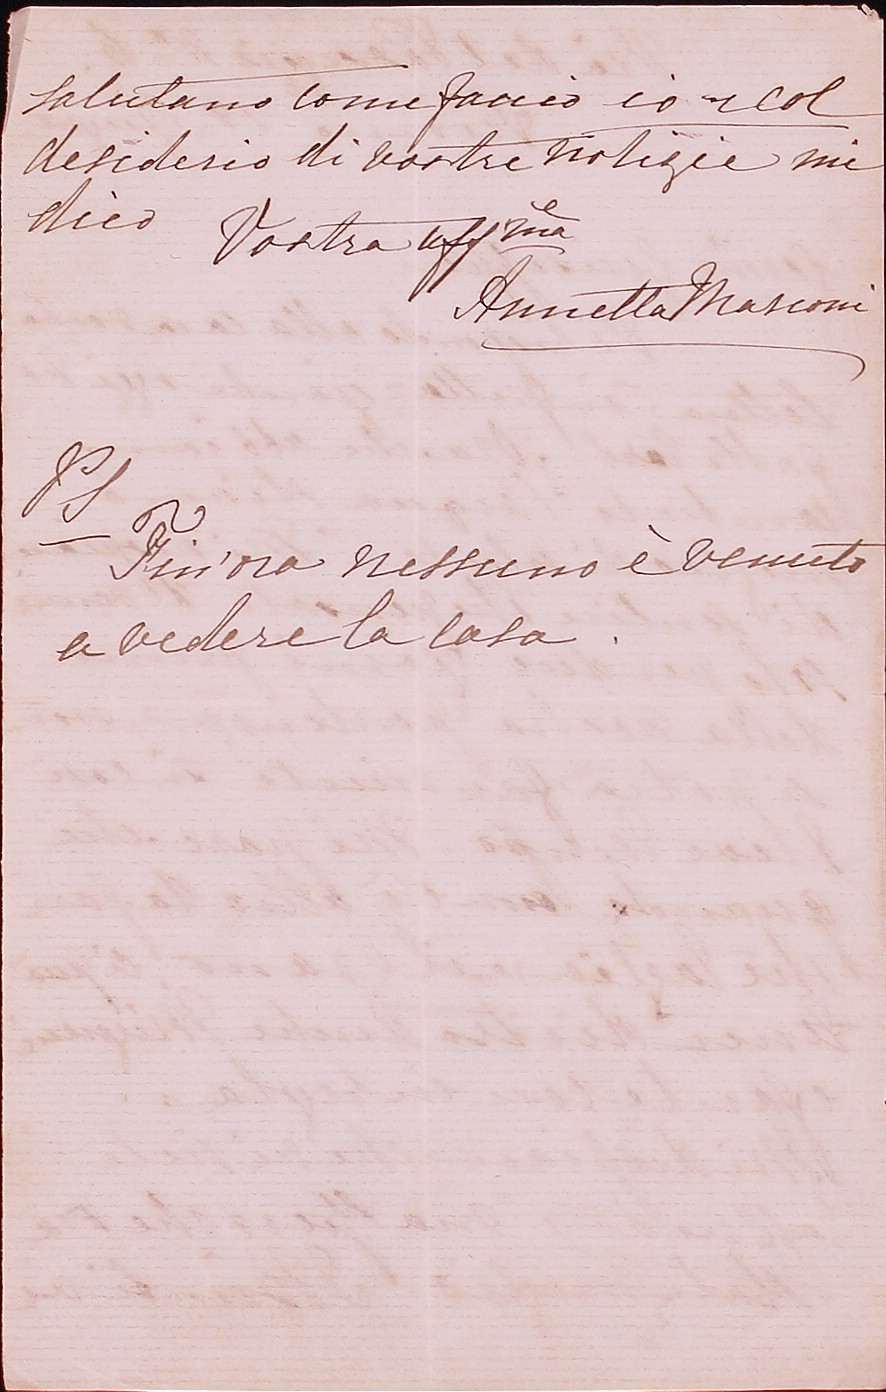 salutano come faccio io e col
desiderio di vostre notizie mi
dico Vostra affma
Annetta Masconi
PS
Fin'ora nessuno è venuto
a vedere la casa.